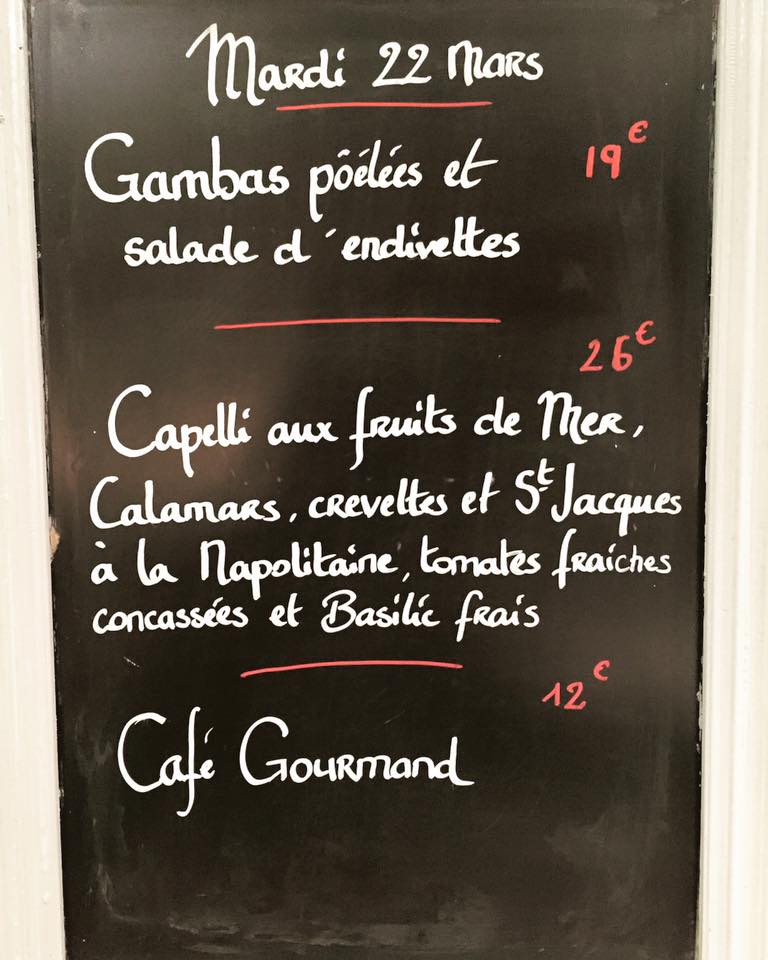 Mardi 22 Mars
Gambas pôélées et 19€
salade d'endivettes
26€
Capelli aux fruits de Mer,
Calamars, crevettes et St Jacques
à la Napolitaine, tomates fraiches
concassées et Basilic frais
12€
Café Gourmand